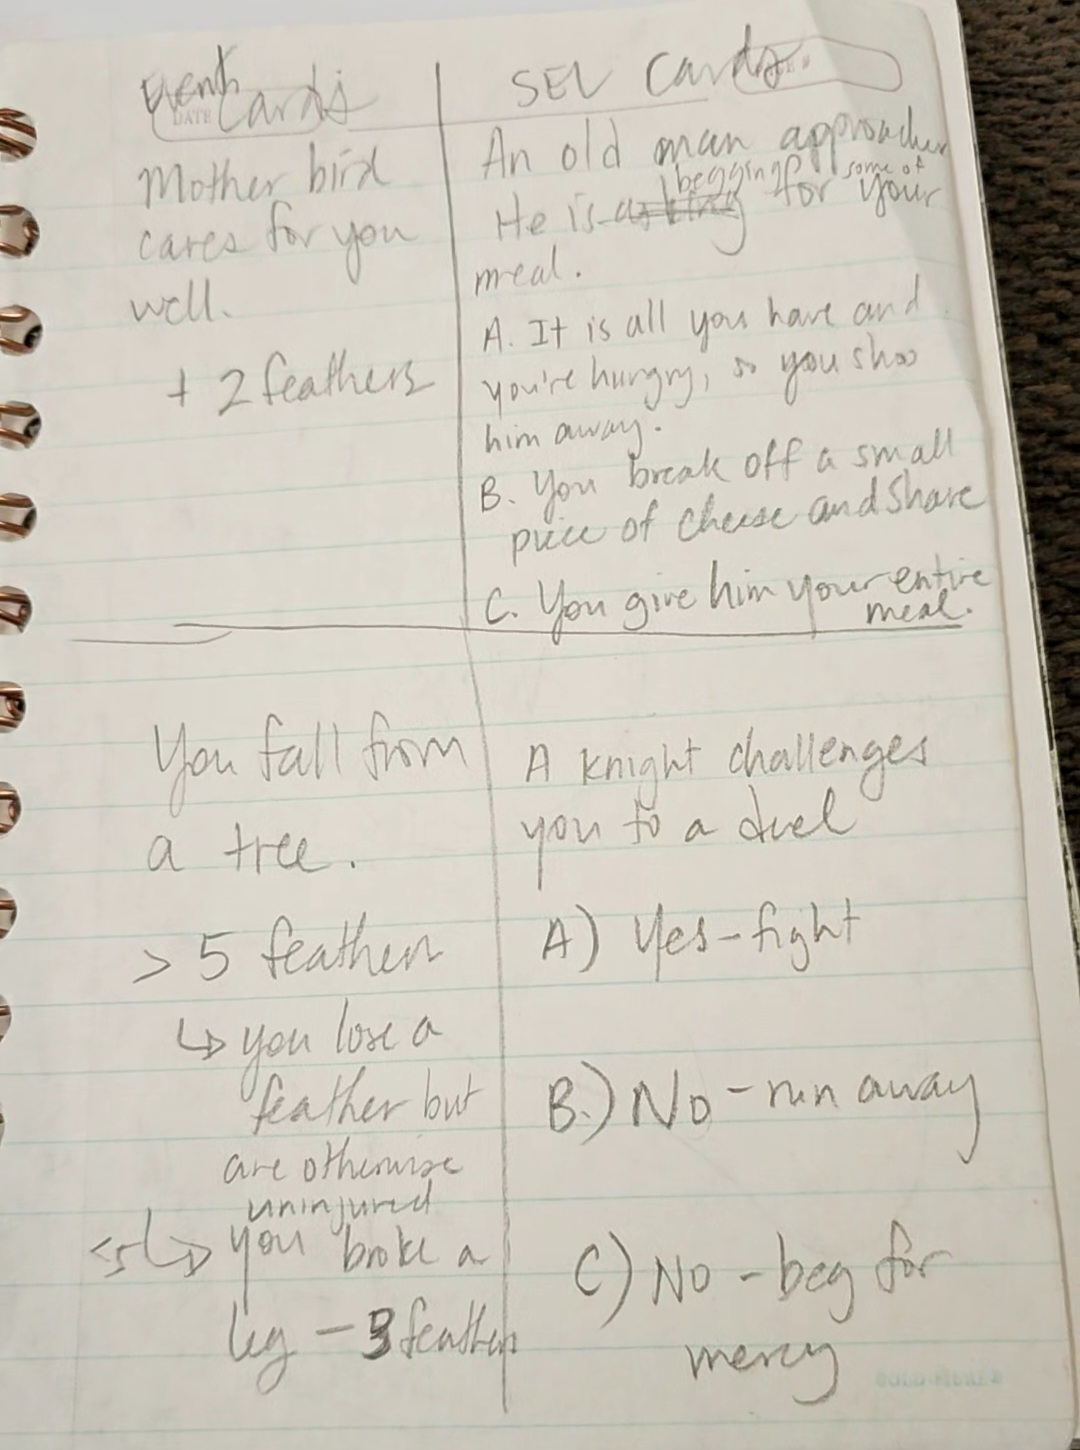 Event Cards
DATE
Mother bird
cares for you
well.
+ 2 feathers
You fall from
a tree.
> 5 feathers
↳ you lose a
feather but
are otherwise
uninjured
<5 ↳ you broke a
leg - 3 feathers
SEL Cards
An old man approaches
He is asking begging for some of your
meal.
A. It is all you have and
you're hungry, so you shoo
him away.
B. You break off a small
piece of cheese and share
C. You give him your entire
meal.
A knight challenges
you to a duel
A) Yes - fight
B.) No - run away
C) No - beg for
mercy